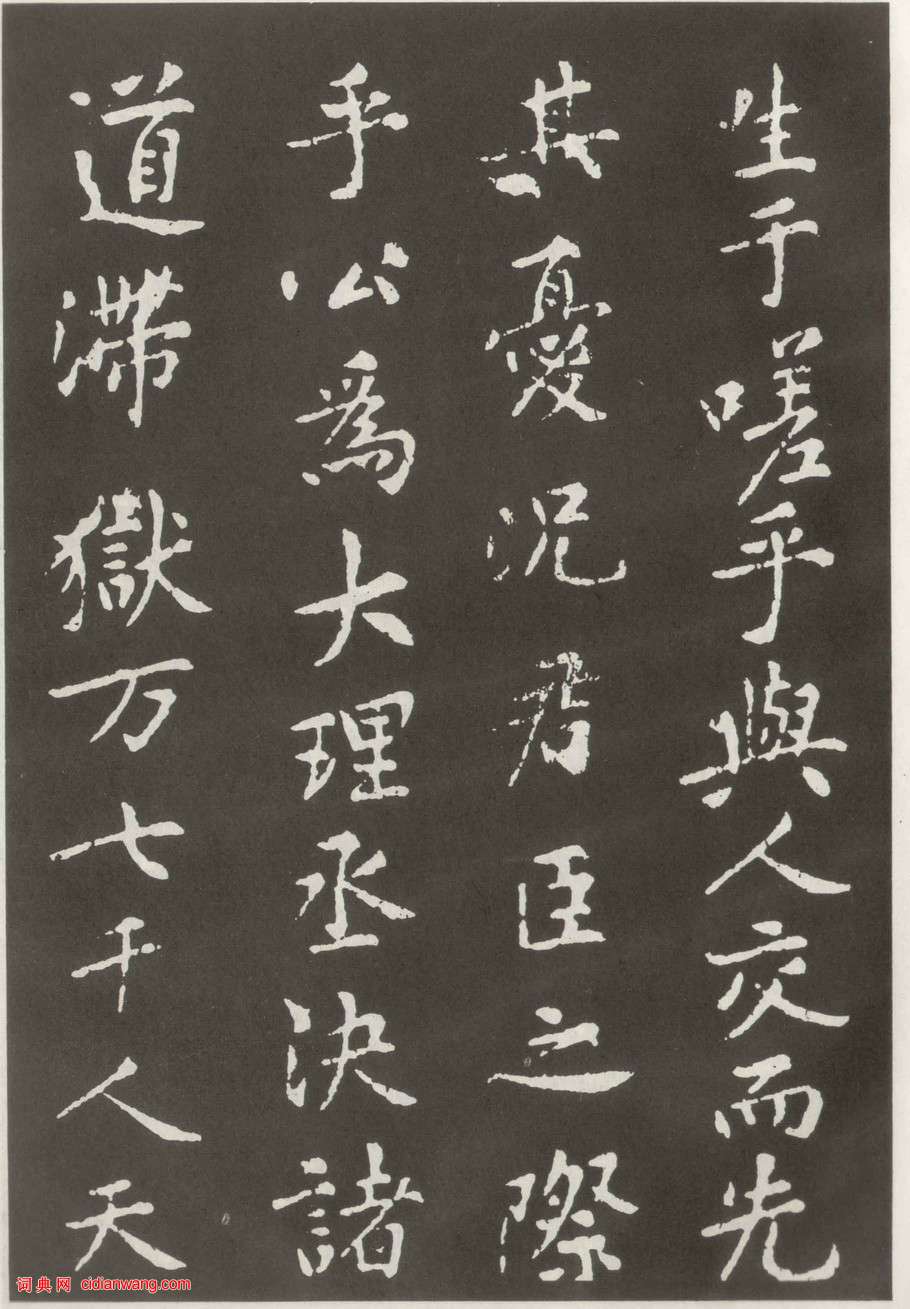 生于嗟乎與人交而先
其憂況君臣之際
乎公為大理丞決諸
道滯獄万七千人天
词典网 cidianwang.com